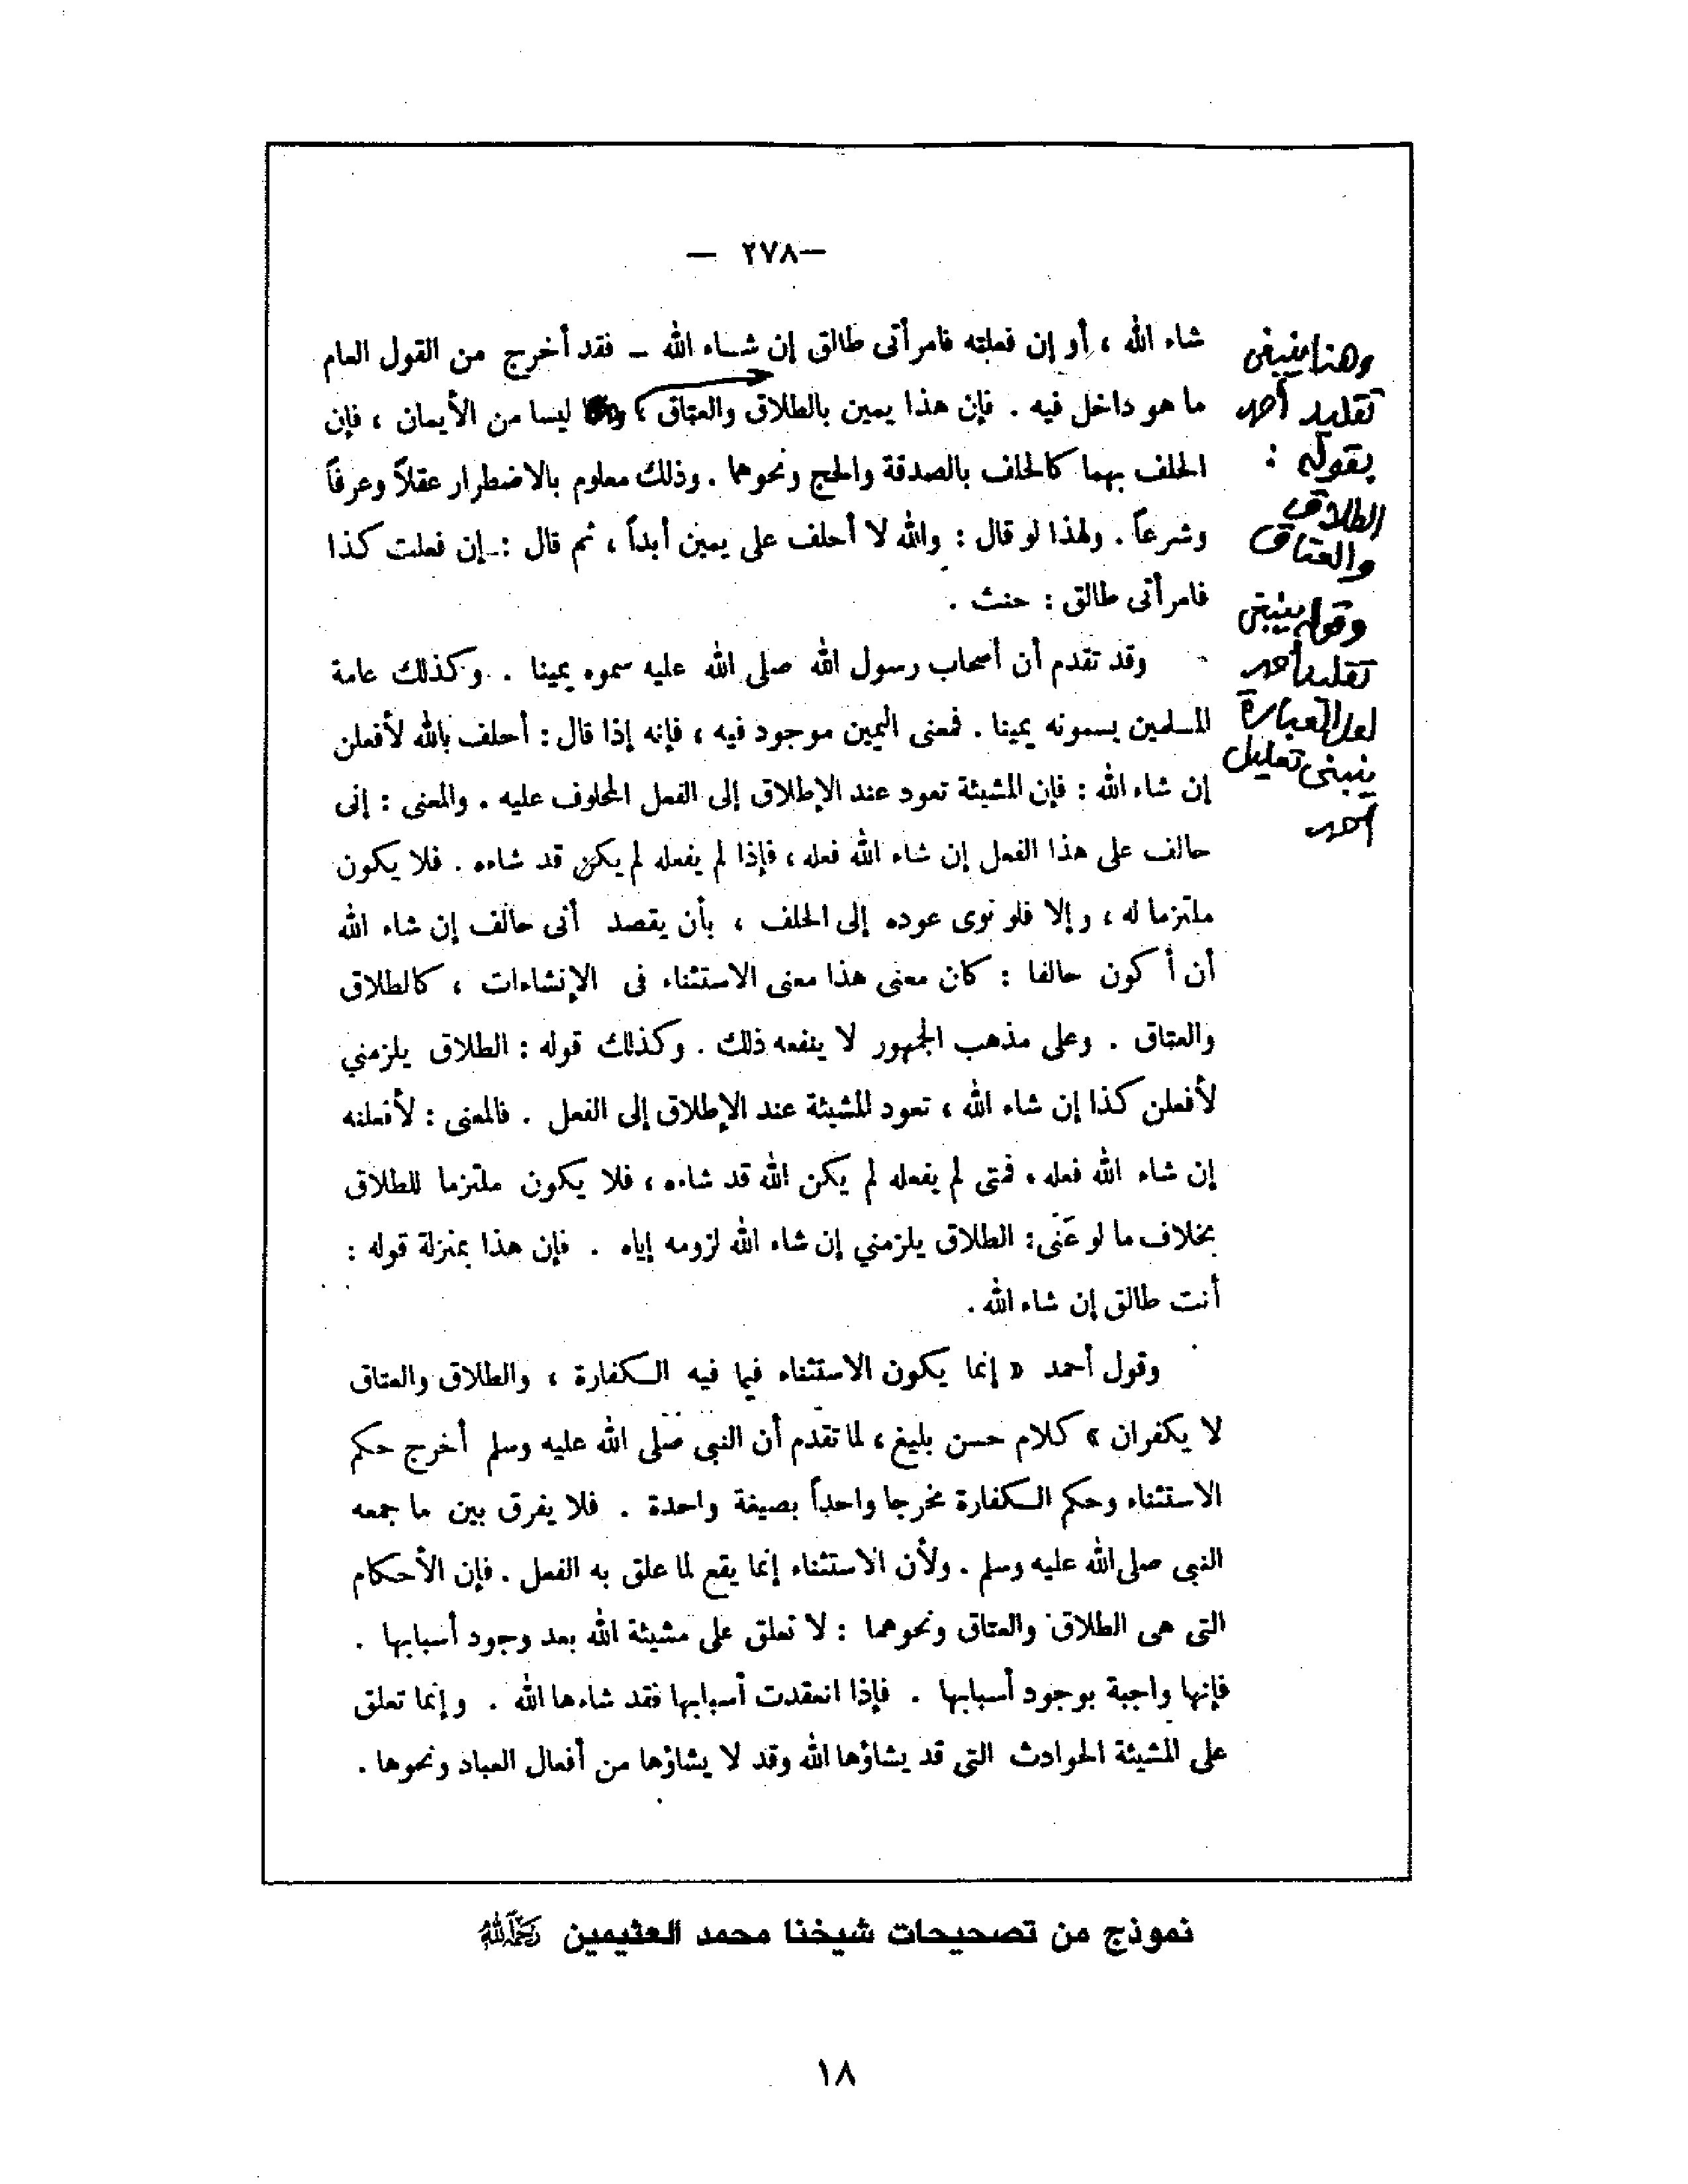 —٢٧٨ —
شاء الله ، أو إن فعلته فامرأتى طالق إن شاء الله – فقد أخرج من القول العام
ما هو داخل فيه . فإن هذا يمين بالطلاق والعتاق ، ليسا من الأيمان ، فإن
الحلف بهما كالحلف بالصدقة والحج ونحوهما . وذلك معلوم بالاضطرار عقلاً وعرفاً
وشرعاً . ولهذا لو قال : والله لا أحلف على يمين أبداً ، ثم قال : إن فعلت كذا
فامرأتى طالق : حنث .
وقد تقدم أن أصحاب رسول الله صلى الله عليه سموه يمينا . وكذلك عامة
المسلمين يسمونه يمينا . فمعنى اليمين موجود فيه ، فإنه إذا قال : أحلف بالله لأفعلن
إن شاء الله : فإن المشيئة تعود عند الإطلاق إلى الفعل المحلوف عليه . والمعنى : إنى
حالف على هذا الفعل إن شاء الله فعله ، فإذا لم يفعله لم يكن قد شاءه . فلا يكون
ملتزما له ، وإلا فلو نوى عوده إلى الحلف ، بأن يقصد أنى حالف إن شاء الله
أن أكون حالفا : كان معنى هذا معنى الاستثناء فى الإنشاءات ، كالطلاق
والعتاق . وعلى مذهب الجمهور لا ينفعه ذلك . وكذلك قوله : الطلاق يلزمني
لأفعلن كذا إن شاء الله ، تعود المشيئة عند الإطلاق إلى الفعل . فالمعنى : لأفعلنه
إن شاء الله فعله ، فمتى لم يفعله لم يكن الله قد شاءه ، فلا يكون ملتزما للطلاق
بخلاف ما لو عَنَى : الطلاق يلزمني إن شاء الله لزومه إياه . فإن هذا بمنزلة قوله :
أنت طالق إن شاء الله .
وقول أحمد « إنما يكون الاستثناء فيما فيه الكفارة ، والطلاق والعتاق
لا يكفران » كلام حسن بليغ ، لما تقدم أن النبى صلى الله عليه وسلم أخرج حكم
الاستثناء وحكم الكفارة مخرجا واحداً بصيغة واحدة . فلا يفرق بين ما جمعه
النبى صلى الله عليه وسلم . ولأن الاستثناء إنما يقع لما علق به الفعل . فإن الأحكام
التى هى الطلاق والعتاق ونحوهما : لا تعلق على مشيئة الله بعد وجود أسبابها .
فإنها واجبة بوجود أسبابها . فإذا انعقدت أسبابها فقد شاءها الله . وإنما تعلق
على المشيئة الحوادث التى قد يشاؤها الله وقد لا يشاؤها من أفعال العباد ونحوها .
وهنا ينبغى
تقليد أحمد
بقوله :
الطلاق
والعتاق
وقوله ينبغى
تقليد أحمد
لعل العبارة
ينبنى تعليل
أحمد
نموذج من تصحيحات شيخنا محمد العثيمين رحمه الله
١٨